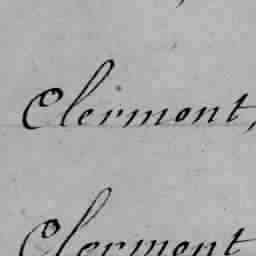 Clermont,
Clermont